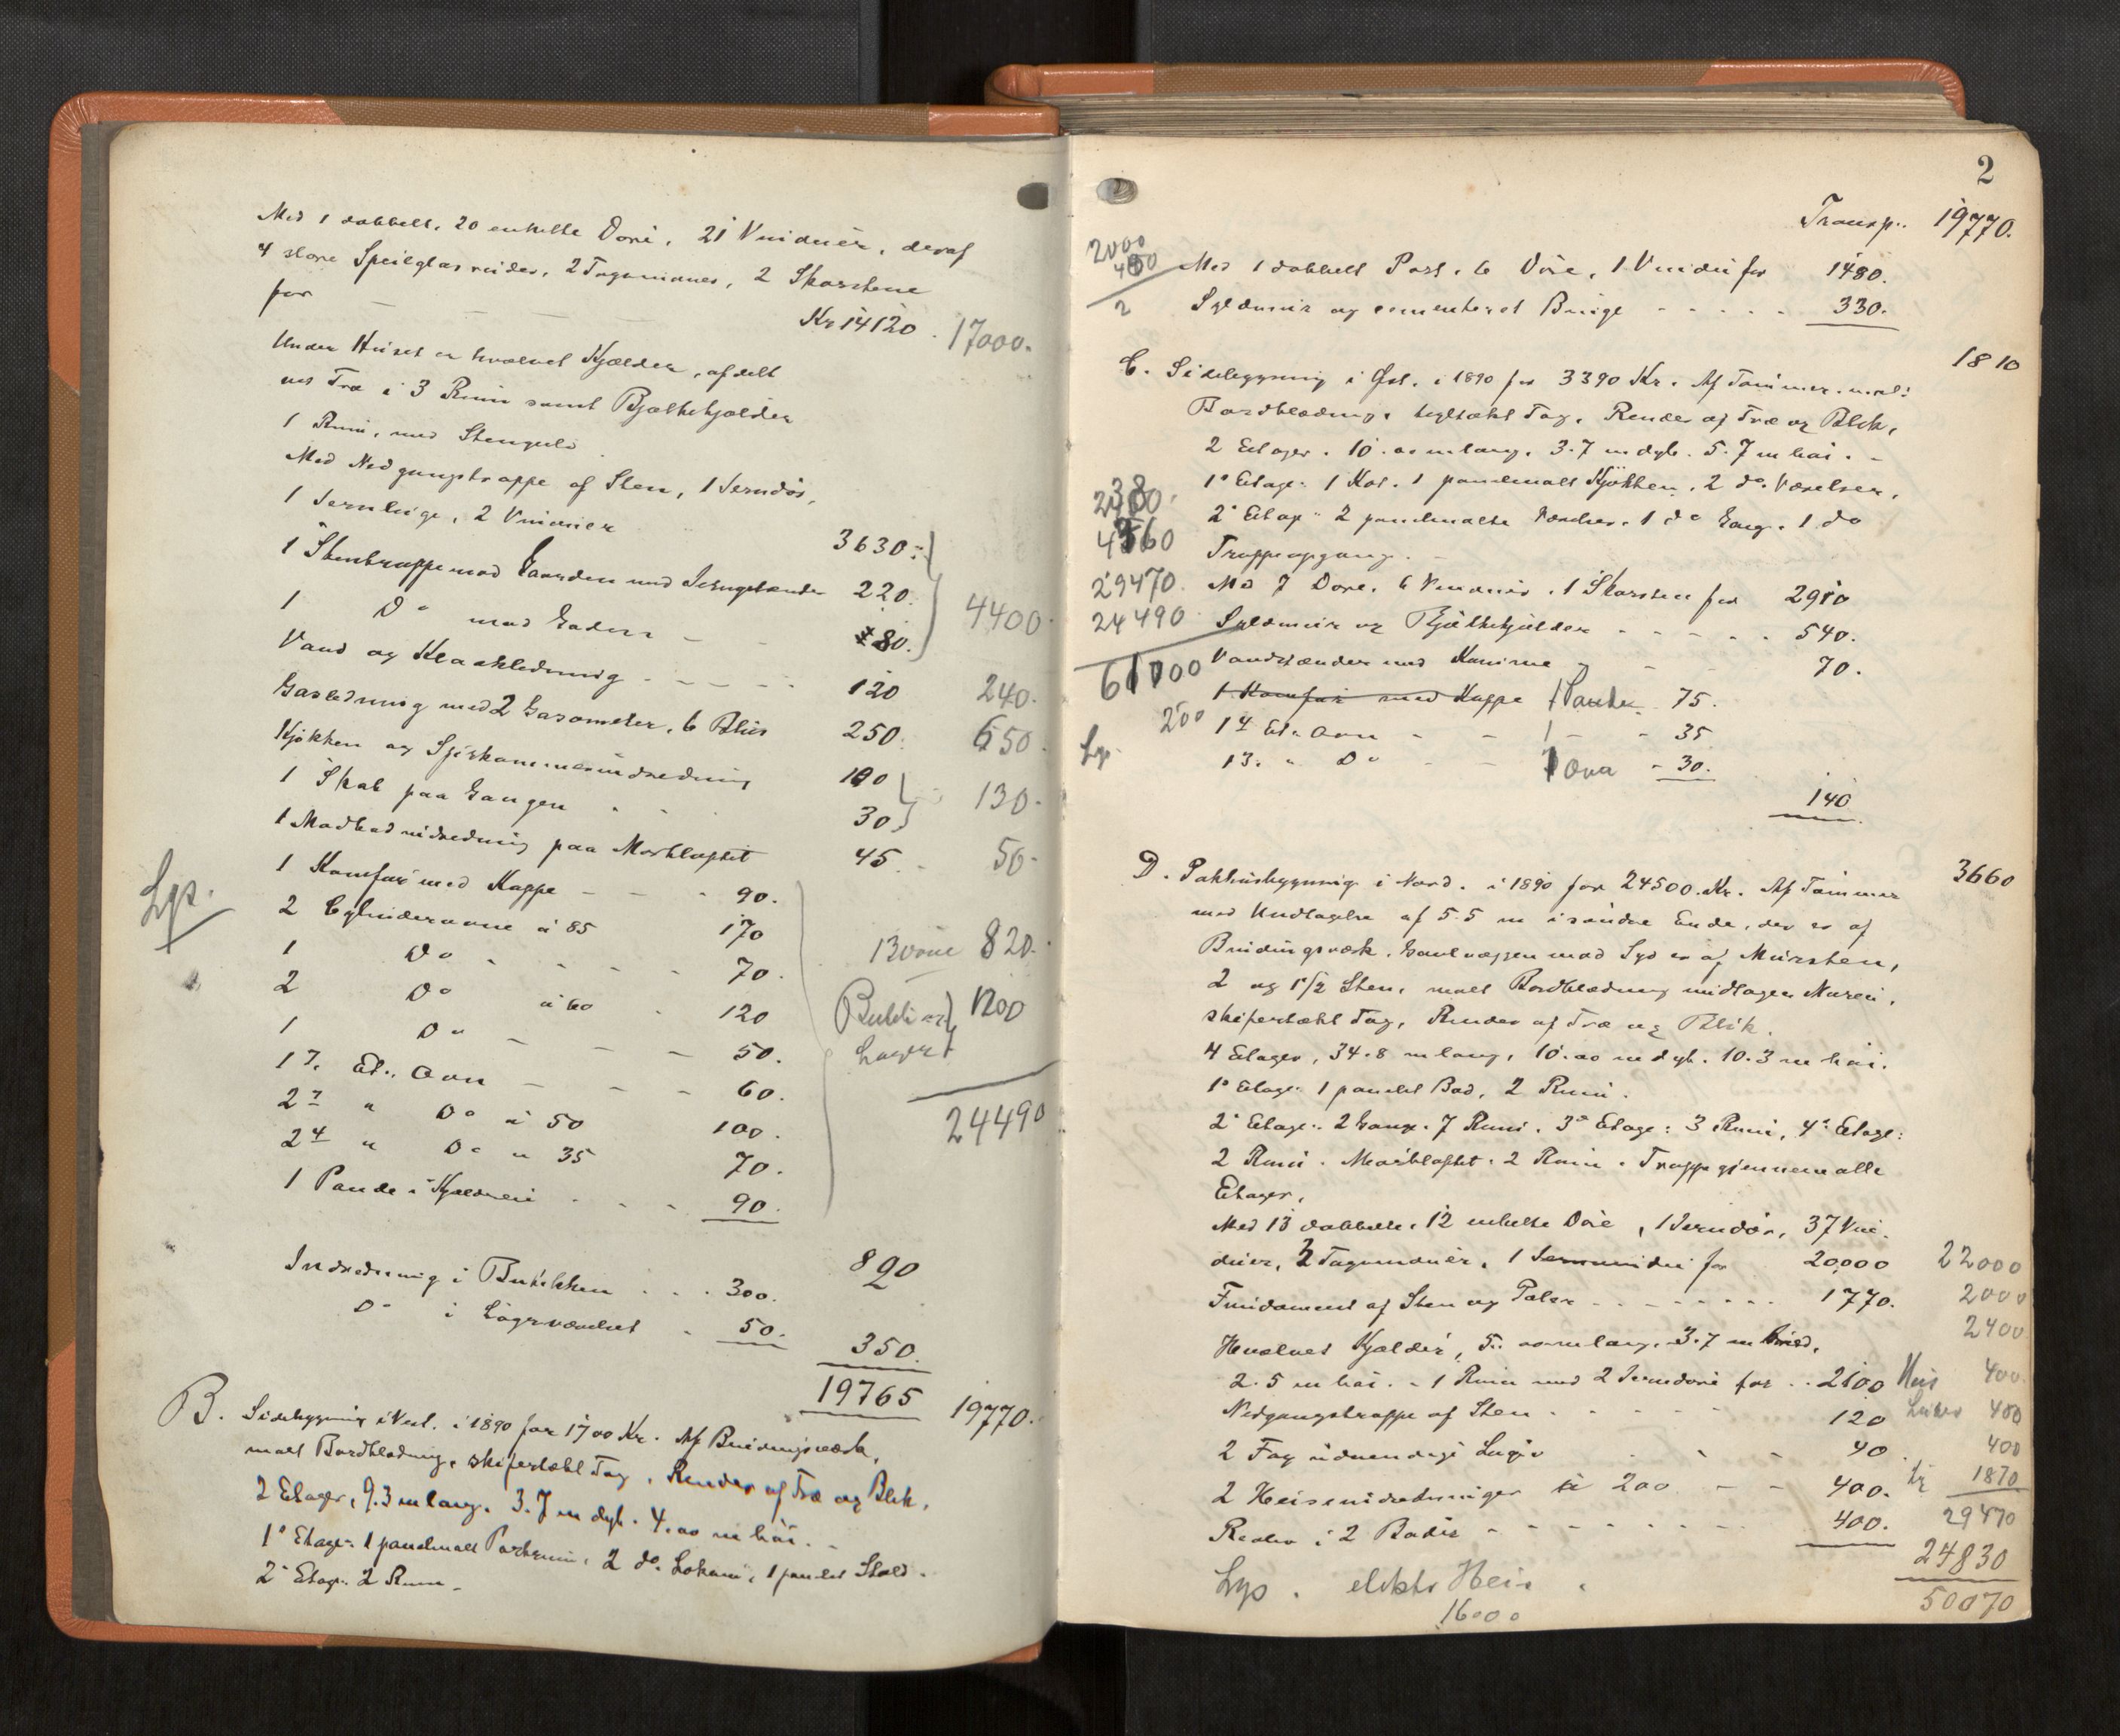 Med 1 dobbelt, 20 enkelte Döre, 21 Vinduer, deraf
4 store Speilglasruder, 2 Tagvinduer, 2 Skorstene
for — — — Kr 14120. 17000.
Under Huset er hvælvet Kjælder, afdelt
ved Træ i 3 Rum samt Bjælkekjælder
1 Rum, med Stengulv
Med Nedgangstrappe af Sten, 1 Jerndör,
1 Jernluge, 2 Vinduer 3630.
1 Stentrappe mod Gaarden med Jerngelænder 220. 4400.
1 Do mod Gaden - 80.
Vand og Kloakledning - - - - 120 240.
Gasledning med 2 Gasometer, 6 Blus 250. 650.
Kjökken og Spiskammerindredning 100
1 Skab paa Gangen 30 130.
1 Madbod indredning paa Mörkloftet 45. 50.
Lys.
1 Komfur med Kappe - - - 90.
2 Cylinderovne á 85 170 820.
1 Do - - - - 70.
2 Do á 60 120 1200
1 Do - - - 50. Lager
1 7. Et. Ovn - - - 60.
2 " Do á 50 100. 24490
2 4 " Do " 35 70.
1 Pande i Kjælderen - - - 90.
890
Indredning i Butikken . . . 300.
Do i Lagerværelset - 50.
350.
19765 19770.
B. Sidebygning i Vest. i 1890 for 1700 Kr. Af Bindingsværk,
malt Bordklædning, skifertækt Tag, Render af Træ og Blik.
2 Etager, 9.3 m lang. 3.7 m dyb. 4.00 m höi. -
1o Etage: 1 panelmalt Portrum, 2 do. Lokum, 1 panelet Stald.
2o Etage. 2 Rum -
2
Transp. 19770.
2000
Med 1 dobbelt Port, 6 Döre, 1 Vindu for 1480.
2
Syldmur og cementeret Binge - - - - - 330.
1810
C. Sidebygning i Öst. i 1890 for 3390 Kr. Af Tömmer. malt
Bordklædning, tegltækt Tag, Render af Træ og Blik,
2 Etager. 10.00 m lang. 3.7 m dyb. 5.7 m höi. -
1o Etage: 1 Kot. 1 panelmalt Kjökken, 2 do. Værelser,
2o Etage 2 panelmalte Værelser. 1 do Gang. 1 do
Trappeopgang. -
29470. Med 7 Döre, 6 Vinduer, 1 Skorsten for 2910
24490 Syldmur og Bjelkekjælder - - - - - 540.
61000 Vandstænder med Kumme - - - 70.
1 Komfur med Kappe 1 Pande 75.
200 1 4 Et. Ovn - - 1 - - 35
Lys
1 3. " Do - - 1 Ovn - 30.
140
3660
D. Pakhusbygning i Nord. i 1890 for 24500 Kr. Af Tömmer
med Undtagelse af 5.5 m i söndre Ende, der er af
Bindingsværk. Gavlvæggen mod Syd er af Mursten,
2 og 1 1/2 Sten, malt Bordklædning undtagen Muren,
skifertækt Tag, Render af Træ og Blik.
4 Etager, 34.8 m lang, 10.00 m dyb. 10.3 m höi.
1o Etage: 1 panelet Bod, 2 Rum.
2o Etage: 2 Gange. 7 Rum. 3o Etage: 3 Rum, 4o Etage:
2 Rum. Mörkloftet. 2 Rum. Trappe gjennem alle
Etager.
Med 13 dobbelte, 12 enkelte Döre, 1 Jerndör, 37 Vin-
duer, 3 Tagvinduer, 1 Jernvindu for 20000 22000
Fundament af Sten og Pæler - - - - - 1770. 2000
2400
Hvælvet Kjælder, 5.00 m lang, 3.7 m bred,
2.5 m höi. - 1 Rum med 2 Jerndöre for . . 2100 Heis 400
Nedgangstrappe af Sten - - - - 120 400
2 Fag udvendige Luger - - - 40 400
2 Heiseindretninger á 200 - - 400. 1870
Reoler i 2 Boder - - - - - - 400. 29470
24830
Lys. elektr Heis. 50070
16000